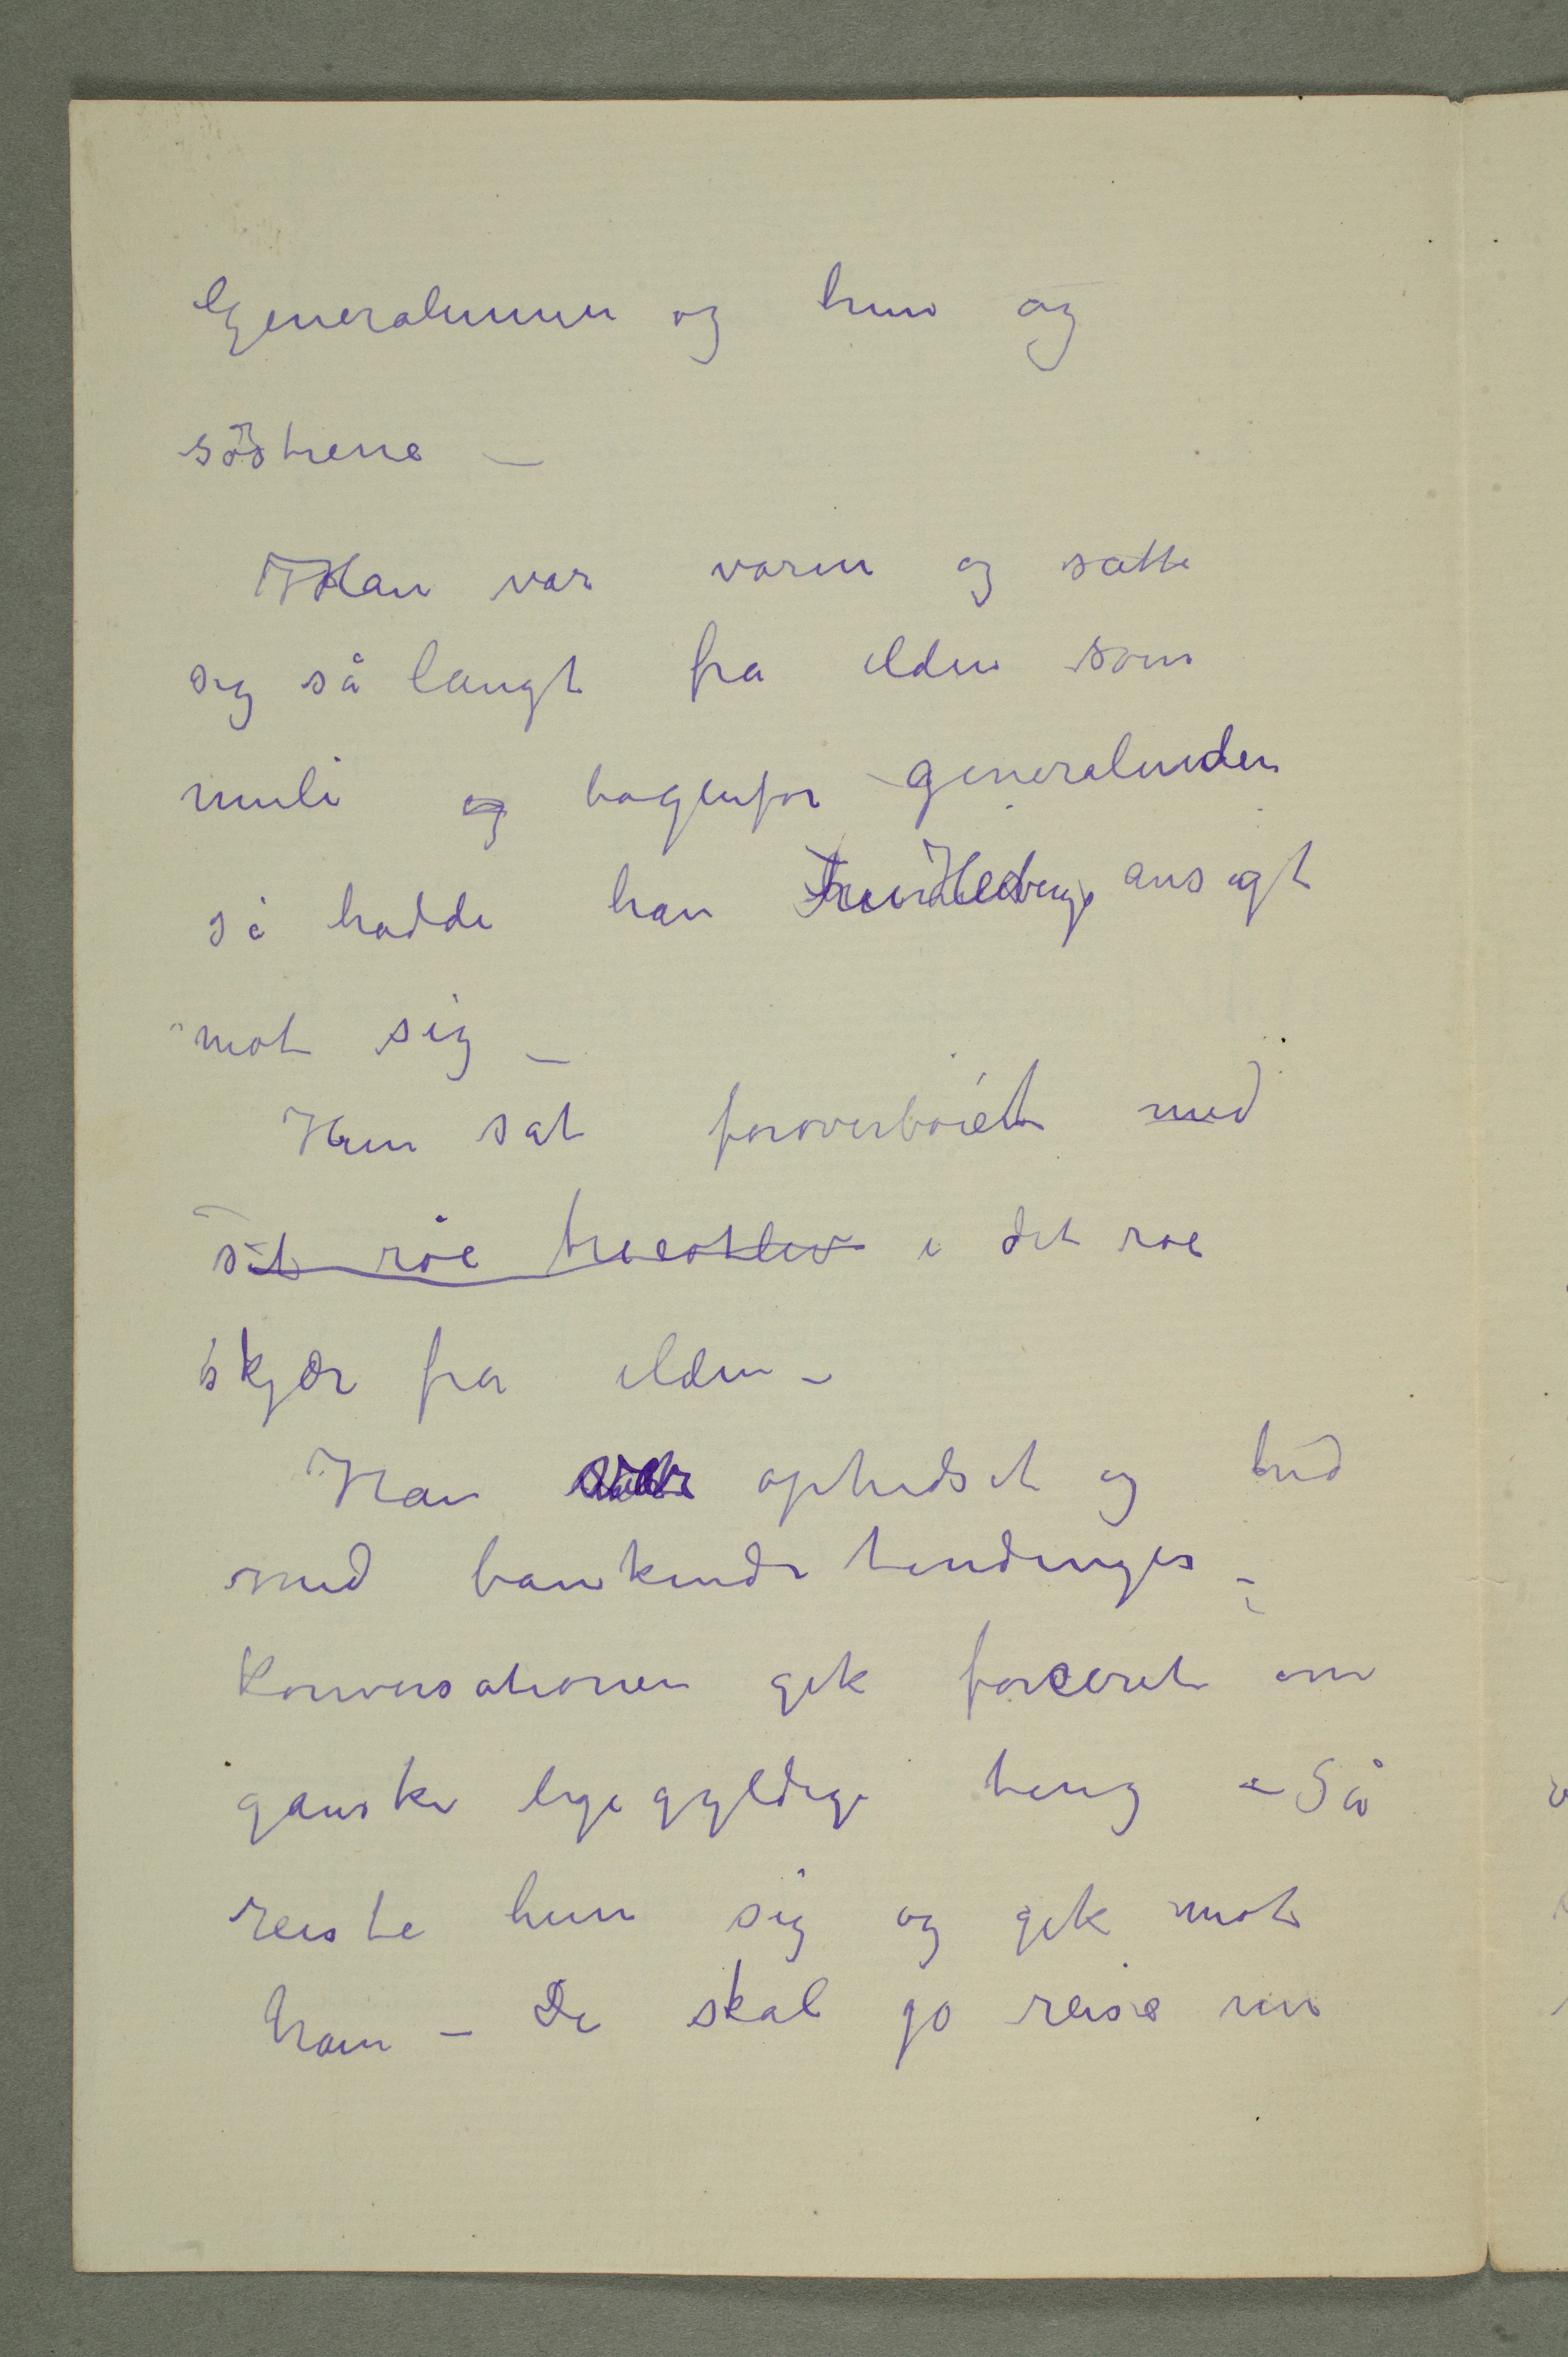 Generalinnen og hun og
søstrene –
Han var varm og satte
sig så langt fra ilden som
muli og bagenfor generalinden
så hadde han Fru Heibergs ansigt
mot sig –
Hun sat foroverbøiet med
sit røe trecotliv i det røe
skjær fra ilden –
Han ophidset og trud
med bankende tindinger –
Konversationen gik forceret om
ganske ligegyldige ting – Så
reiste hun sig og gik mot
ham – De skal jo reise nu